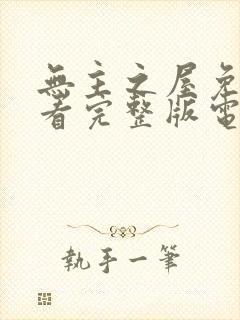 無主之屋免
看完整版電
執手一筆